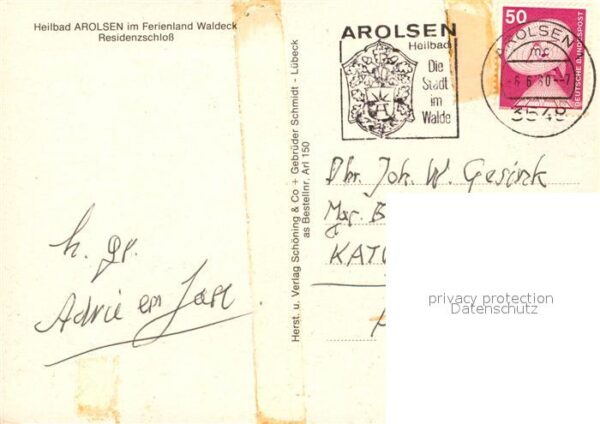 Heilbad AROLSEN im Ferienland Waldeck
Residenzschloß
AROLSEN
Heilbad
Die
Stadt
im
Walde
50
DEUTSCHE BUNDESPOST
AROLSEN
mc
-6.6.80.-7
3548
Herst. u. Verlag Schöning & Co + Gebrüder Schmidt - Lübeck
as Bestellnr. Arl 150
Dhr. Joh. W. Gesink
B
KAT
h. gr.
Adrie en
privacy protection
Datenschutz